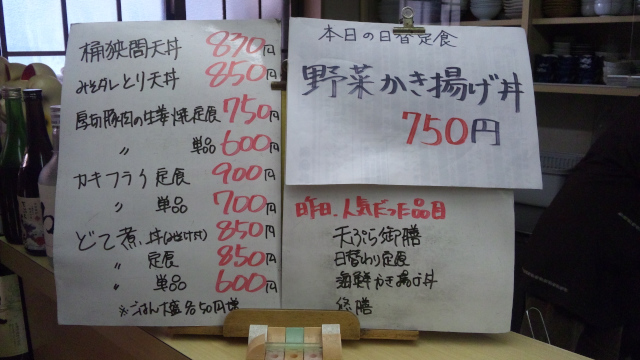 桶狭間天丼 870円
みそダレとり天丼 850円
厚切豚肉の生姜焼定食 750円
〃 単品 600円
カキフライ定食 900円
〃 単品 700円
どて煮、丼 850円
〃 定食 850円
〃 単品 600円
※ごはん大盛各50円増
本日の日替定食
野菜かき揚げ丼
750円
昨日、人気だった品目
天ぷら御膳
日替わり定食
海鮮かき揚げ丼